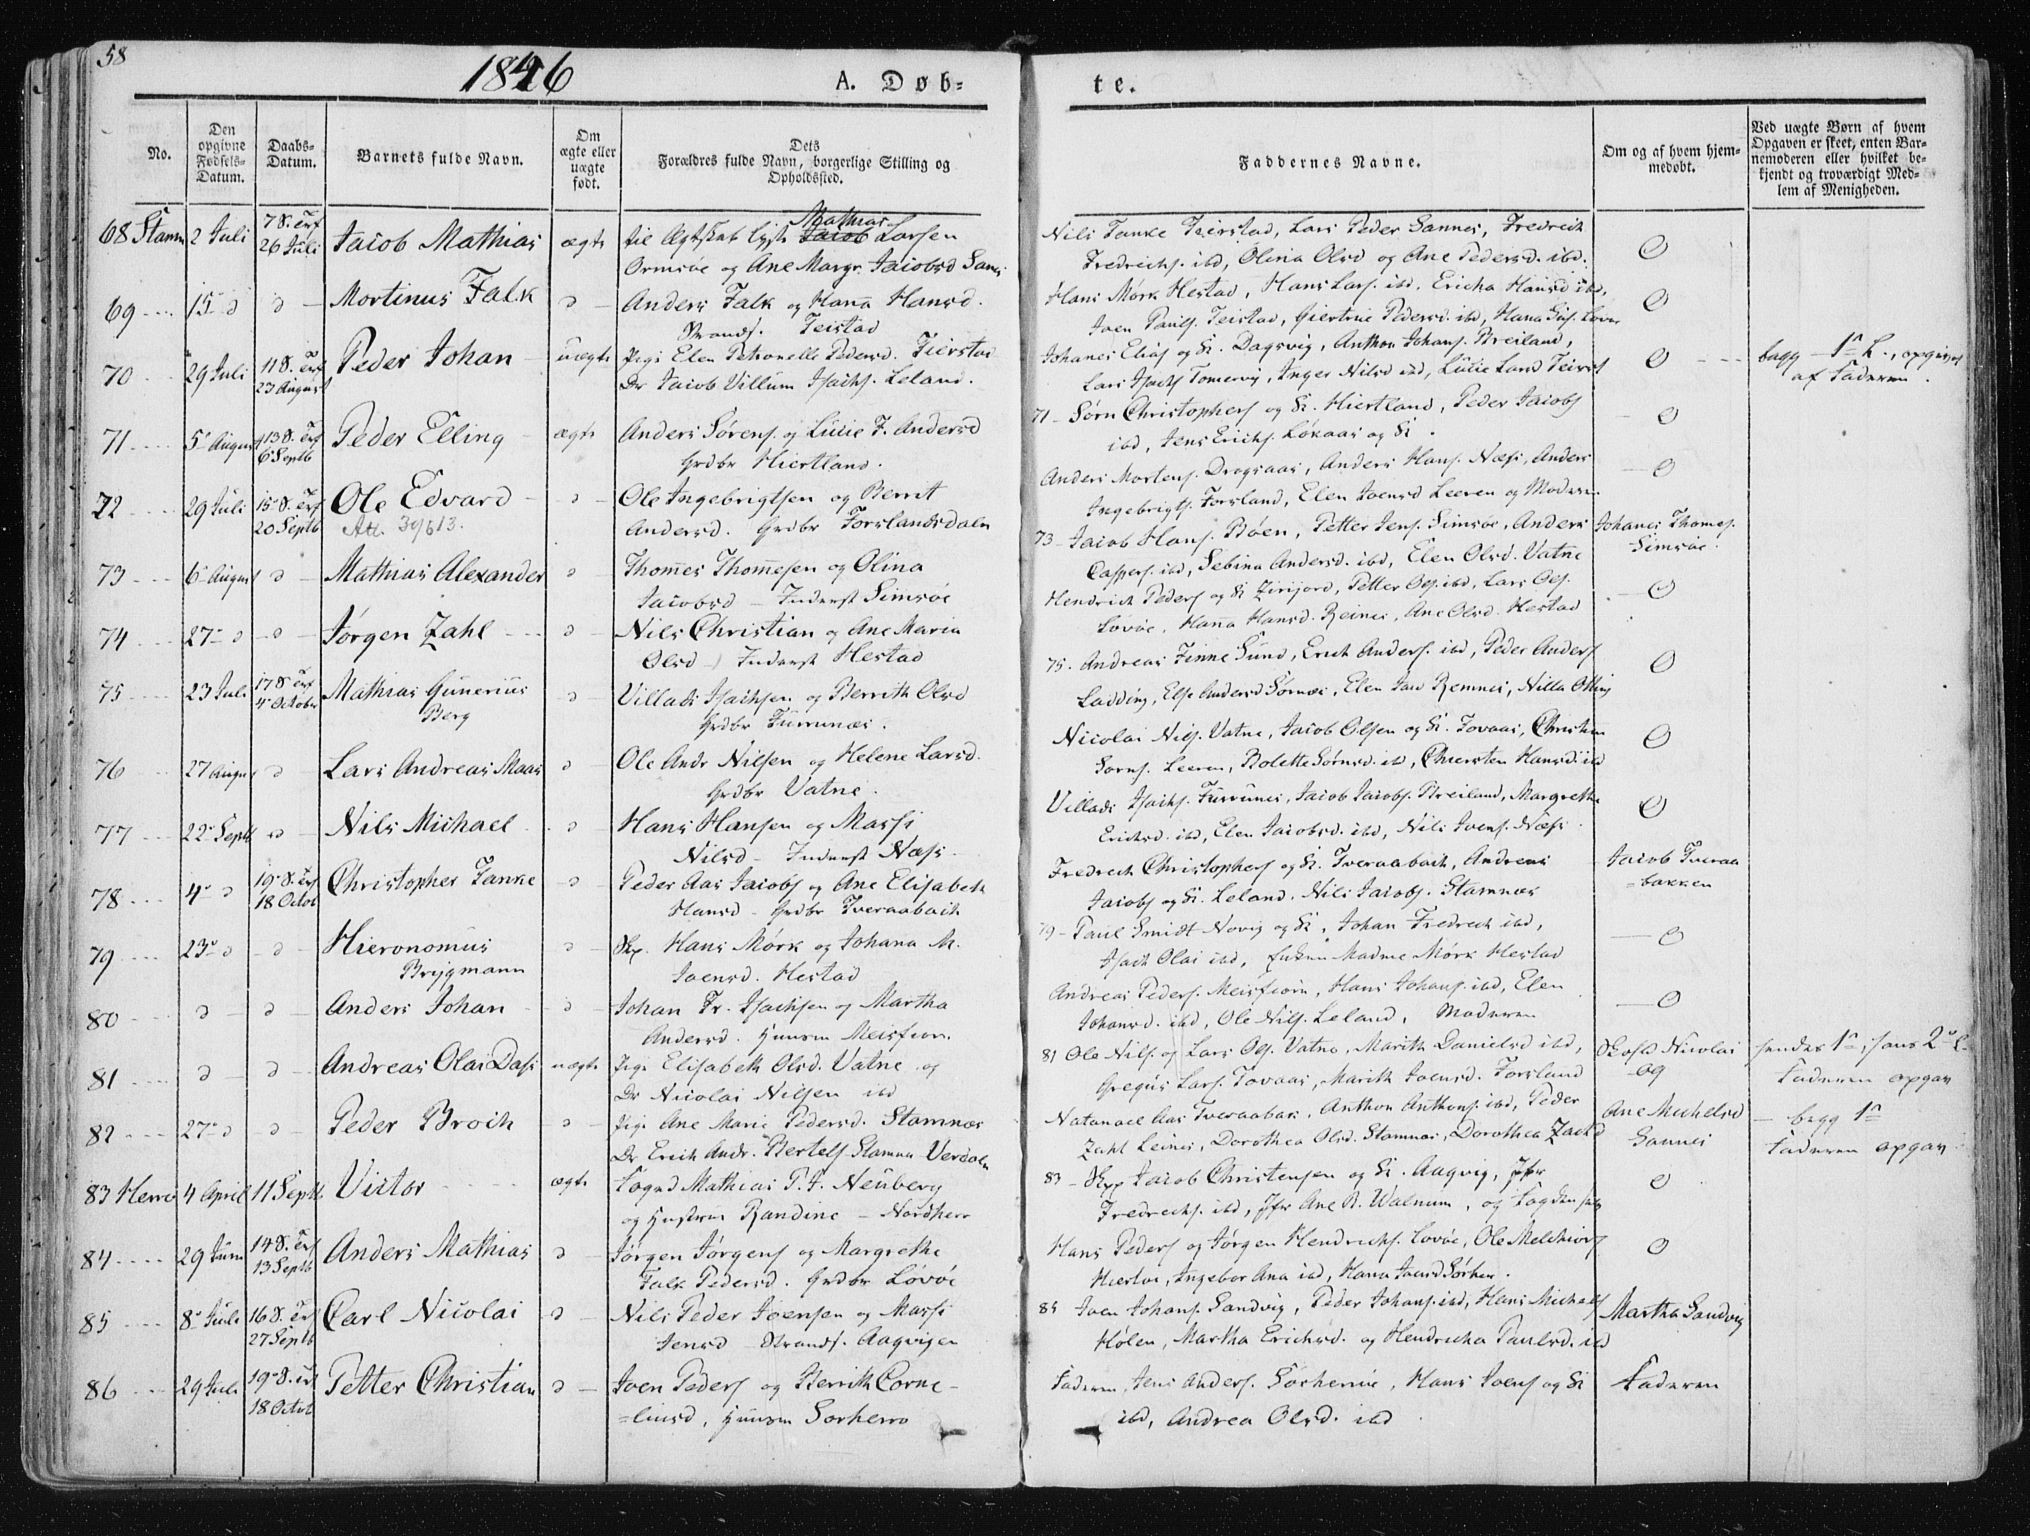 58
1846
A. Døb-
te.
No.
Den opgivne Fødsels-Datum.
Daabs-Datum.
Barnets fulde Navn.
Om ægte eller uægte født.
Dets Forældres fulde Navn, borgerlige Stilling og Opholdssted.
Faddernes Navne.
Om og af hvem hjem-medøbt.
Ved uægte Børn af hvem Opgaven er skeet, enten Bar-nemoderen eller hvilket be-kjendt og troværdigt Med-lem af Menigheden.
68 Stamn 2 Juli 7 S. Trf 26 Juli Jacob Mathias ægte til Ægtskab lyste Jacob Mathias Larsen
Ormsøe og Ane Margr. Jacobsd Sannes
Nils Tanke Teirstad, Lars Peder Sannes, Fredrich
Fredrichs. ibd, Olina Olsd og Ane Pedersd. ibd. O
69 15 d d Mortinus Falk d Anders Falk og Hana Hansd.
Strands. Teistad
Hans Mørk Hestad, Hans Lars. ibd, Ericha Hansd ibd,
Joen Pauls. Teistad, Giertrue Pedersd. ibd, Hana O
70 29 Juli 11 S. Trf 23 August Peder Johan uægte Pige Elen Petronelle Pedersd. Teirstad
Dr Jacob Villum Isachs. Leland.
Johanes Elias og K. Dagsvig, Anthon Johans. Breiland,
Lars Isachs Tomervig, Inger Nilsd ibd, Lucie Larsd Teirst O
begg 1ste L., opgivet
af Faderen.
71 5 August 13 S. Trf 6 Septb Peder Elling ægte Anders Sørens. og Lucie F. Andersd
Grdbr Hiertland.
71 - Sørn Christophers og K. Hiertland, Peder Jacobs
ibd, Jens Erichs. Løkaas og K. O
72 29 Juli 15 S. Trf 20 Septb Ole Edvard d Ole Ingebrigtsen og Berret
Att. 30/6 13.
Andersd. Grdbr Forslandsdaln
Anders Mortens. Dragsaas, Anders Hans. Næss, Anders
Ingebrigts. Forsland, Elen Joensd Leeren og Moderen O
73 6 August d Mathias Alexander d Thomes Thomesen og Olina
Jacobsd - Inderst Simsøe
73 - Jacob Hans. Bøen, Petter Jens. Simsøe, Anders
Caspers. ibd, Sebina Andersd. ibd, Elen Olsd. Vatne
Johanes Thomes.
Simsøe.
74 27 d d Jørgen Zahl d Nils Christian og Ane Maria
Olsd - Inderst Hestad
Hendrich Peders og K. Zirijord, Petter Ols. ibd, Lars Ols.
Løvøe, Hana Hansd. Reines, Ane Olsd. Hestad O
75 23 Juli 17 S. Trf 4 October Mathias Gunerius
Berg d Villads Isachsen og Berrith Olsd
Grdbr Furrunæs.
75. Andreas Finne Sund, Erich Anders. ibd, Peder Anders
Ladding, Else Andersd Sørnæs, Elen Remnes, Nilla O
76 27 August d Lars Andreas Maas d Ole Andr Nilsen og Helene Larsd.
Grdbr Vatne.
Nicolai Nils. Vatne, Jacob Olsen og K. Tovaas, Christen
Sorns. Leeren, Bolette Sørnsd. ibd, Chiersten Hansd. ibd O
77 22 Septb d Nils Michael d Hans Hansen og Massi
Nilsd - Inderst Næss.
Villads Isachs. Furrunes, Jacob Jacobs. Breiland, Margrethe
Erichsd. ibd, Elen Jacobsd. ibd, Nils Ivens. Næss. O
78 4 d 19 S. Trf 18 Octob Christopher Tanke d Peder Aas Jacobs og Ane Elisabeth
Hansd - Grdbr Tveraabach
Fredrech Christophers og K. Tveraabach, Andreas
Jacobs og K. Leland, Nils Jacobs. Stamnæs
Jacob Tveraa
=bakken
79 23 d d Hieronomus
Brygmann d Skp. Hans Mørk og Johana M.
Joensd. Hestad
79 - Paul Smidt Novig og K., Johan Fredrech ibd,
Isach Olai ibd, Enken Madme Mørk Hestad O
80 d d Anders Johan d Johan Fr. Isachsen og Martha
Andersd. Huusm Meisfiorn.
Andreas Peders. Meisfiorn, Hans Johans. ibd, Elen
Johansd. ibd, Ole Nils. Leland, Moderen O
81 d d Andreas Olai Dass uægte Pige Elisabeth Olsd. Vatne og
Dr Nicolai Nilsen ibd
81 Ole Nils. og Lars Ols. Vatne, Marith Danielsd ibd,
Gregus Lars. Tovaas, Marith Joensd. Forsland
Skolel Nicolai
og
hendes 1ste, hans 2det L.
Faderen opgav
82 27 d d Peder Broch d Pige Ane Marie Pedersd. Stamnæs
Dr Erich Andr. Bertels. Stamn Verdaln
Natanael Aas Tveraabak, Anthon Anthons. ibd, Peder
Zahl Leines, Dorothea Olsd. Stamnæs, Dorothea Zachd
Ane Michelsd
Sannes
begg 1ste
Faderen opgav
83 Herrø 4 April 11 Septb. Victor ægte Fogd Mathias P. J. Neuberg
og Hustrue Randine - Nordherr
83 - Skp Jacob Christensen og K. Aagvig, Jfr
Fredrechs. ibd, Jfr Ane R. Walnum, og Fogden selv O
84 29 Juni 14 S. Trf 13 Septb Anders Mathias d Jørgen Jørgens og Margrethe
Falk Pedersd. Grdbr Løvøe
Hans Peders og Jørgen Hendrichs. Lovøe, Ole Melchiors
Hiestøe, Ingebor Ana ibd, Hana Joensd Sørher. O
85 8 Juli 16 S. Trf 27 Septb Carl Nicolai d Nils Peder Joensen og Massi
Jensd - Strands. Aagvigen
85 Joen Johans. Sandvig, Peder Johans. ibd, Hans Michaels
Holen, Martha Erichsd. og Hendricha Paulsd. ibd
Martha Sandvig
86 29 Juli 19 S. Trf 18 Octob Petter Christian d Joen Peders og Berrith Corne-
=liusd, Huusm Sorherrø
Faderen, Jens Anders. Sørherrø, Hans Joens og K
ibd, Andrea Olsd. ibd
Faderen